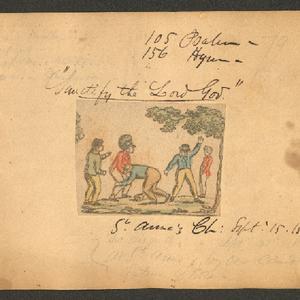 105 Psalm -
156 Hymn -
"Sanctify the Lord God."
St. Anne's Ch: Sept: 15.